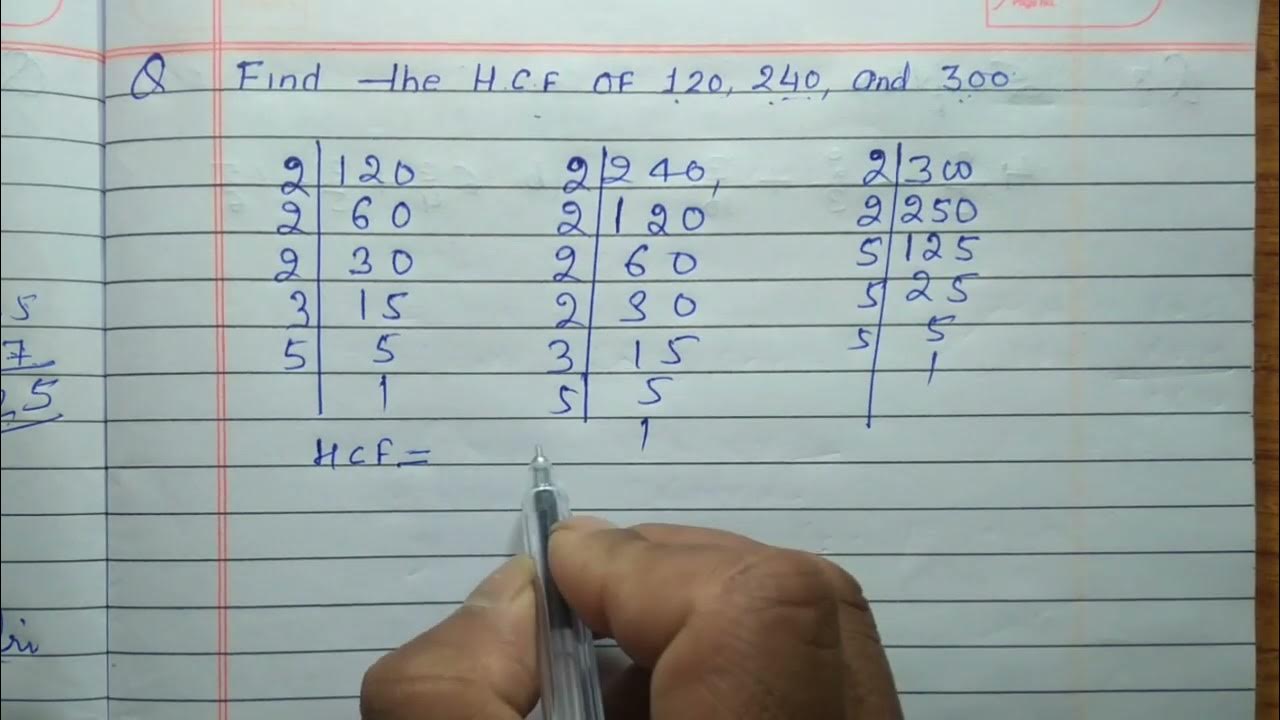 Q Find the H.C.F OF 120, 240, and 300
2 120 2 240, 2 300
2 60 2 120 2 250
2 30 2 60 5 125
3 15 2 30 5 25
5 5 3 15 5 5
1 5 5 1
1
HCF =
5
7
5